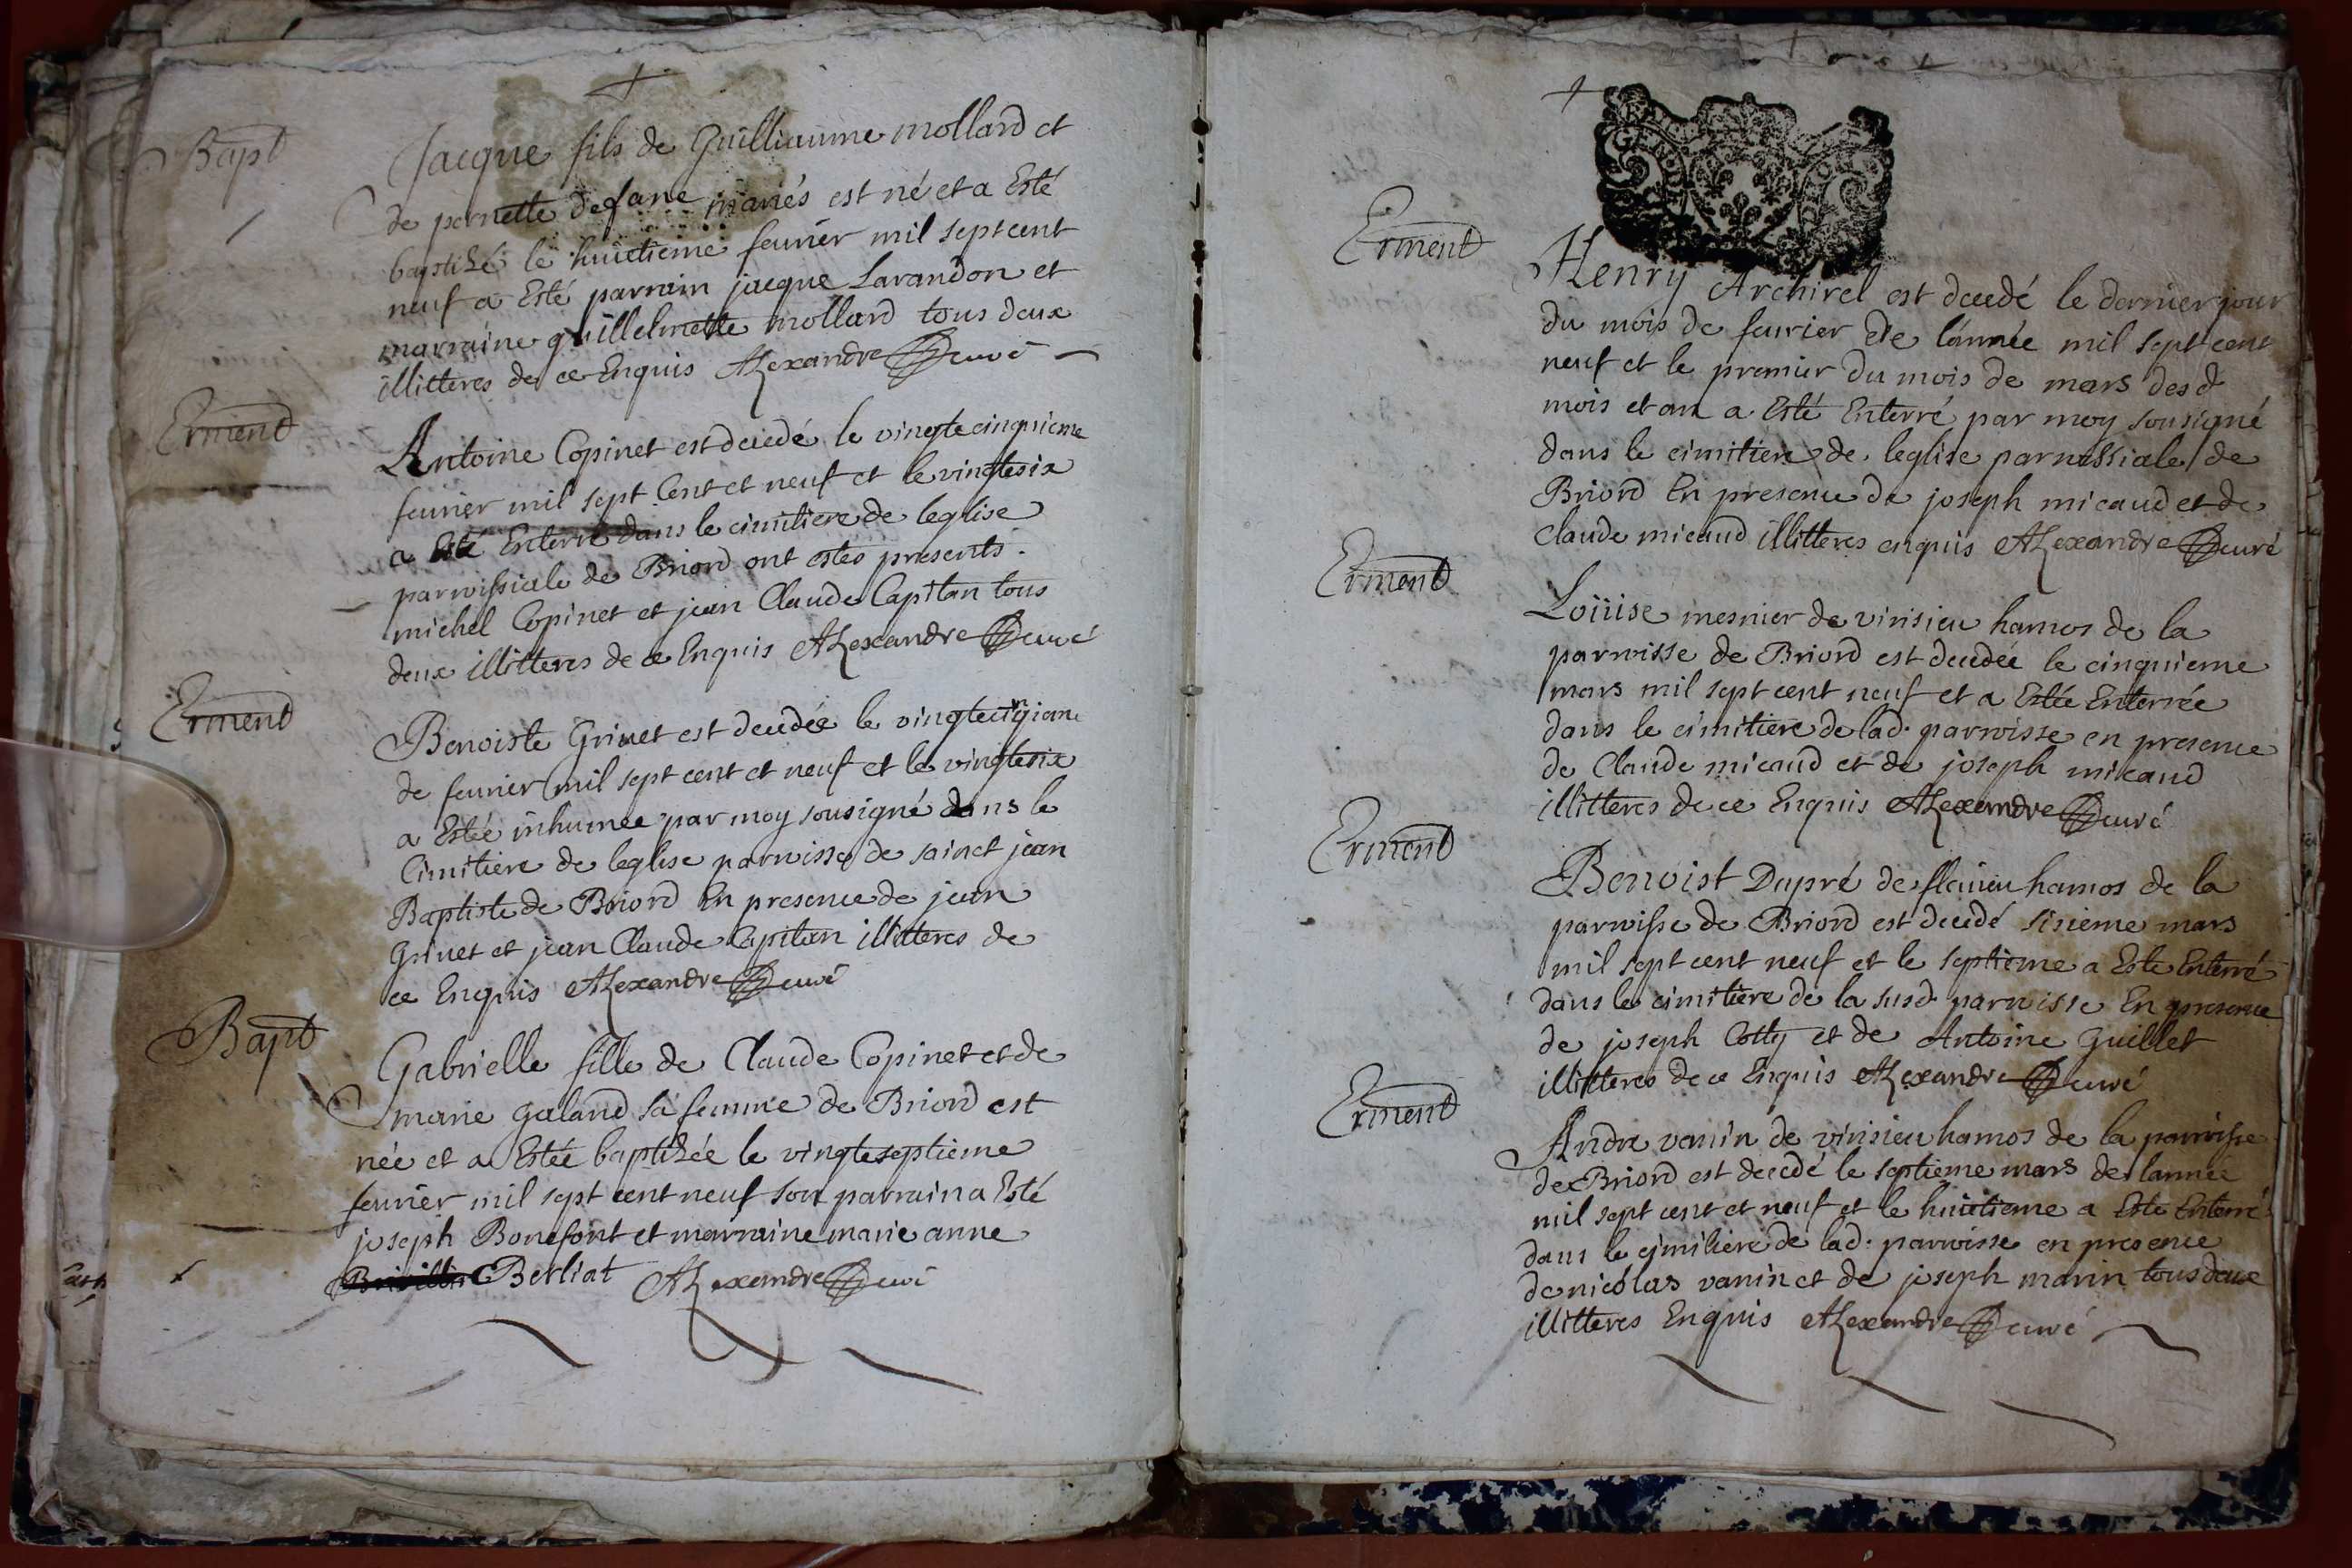 Bapt
Jacque fils de Guilliaume mollard et
de pernette defane mariés est né et a Esté
baptisé le huictieme feurier mil sept cent
neuf a Esté parrain jacque Larandon et
marraine guillelmette mollard tous deux
illitteres de ce Enquis Alexandre curé
Erment
Antoine Copinet est decedé le vingtecinquieme
feurier mil sept Cent et neuf et le vingtesix
a Esté Enterré dans le cimitiere de leglise
parroissiale de Briord ont estes presents.
michel Copinet et jean Claude Capitan tous
deux illitteres de ce Enquis Alexandre curé
Erment
Benoiste Grinet est decedée le
de feurier mil sept cent et neuf et le vingtesix
a Estée inhumée par moy sousigné dans le
Cimitiere de leglise parroisse de sainct jean
Baptiste de Briord En presence de jean
Grinet et jean Claude Capitan illitteres de
ce Enquis Alexandre curé
Bapt
Gabrielle fille de Claude Copinet et de
marie galand sa femme de Briord est
née et a Estée baptisée le vingteseptieme
feurier mil sept cent neuf son parrain a Esté
joseph Bonefont et marraine marie anne
Berliat Alexandre curé
Erment
Henry Archirel est decedé le dernier jour
du mois de feurier de l'année mil sept cent
neuf et le premier du mois de mars des d
mois et an a Esté Enterré par moy sousigné
dans le cimitiere de leglise parroissiale de
Briord En presence de joseph micaud et de
Claude micaud illitteres enquis Alexandre curé
Erment
Loüise mesnier de virisieu hamos de la
parroisse de Briord est decedée le cinquieme
mars mil sept cent neuf et a Estée Enterrée
dans le cimitiere de lad. parroisse en presence
de Claude micaud et de joseph micaud
illitteres de ce Enquis Alexandre curé
Erment
Benoist Dupré de flerieu hamos de la
parroisse de Briord est decedé sisieme mars
mil sept cent neuf et le septieme a Este Enterré
dans le cimitiere de la susd. parroisse En presence
de joseph Cotty et de Antoine Guillet
illitteres de ce Enquis Alexandre curé
Erment
Andre vanin de virisieu hamos de la parroisse
de Briord est decedé le septieme mars de lannée
mil sept cent et neuf et le huictieme a Este Enterré
dans le cimitiere de lad. parroisse en presence
de nicolas vanin et de joseph marin tous deux
illitteres Enquis Alexandre curé